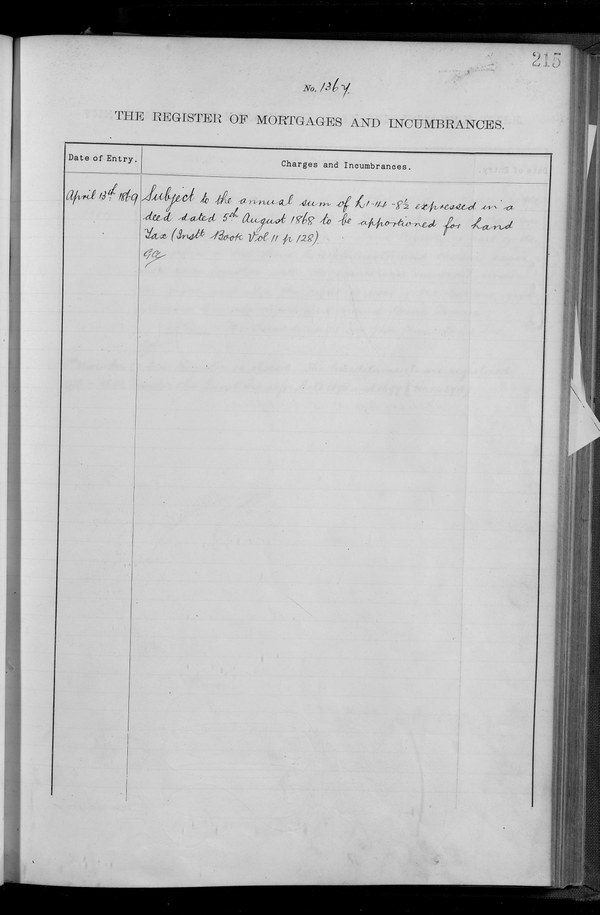 215
No. 1364
THE REGISTER OF MORTGAGES AND INCUMBRANCES.
Date of Entry.
Charges and Incumbrances.
April 13th 1869
Subject to the annual sum of £1-44-8½ expressed in a
deed dated 5th August 1868 to be apportioned for Land
Tax (Instt Book Vol 11 p 128)